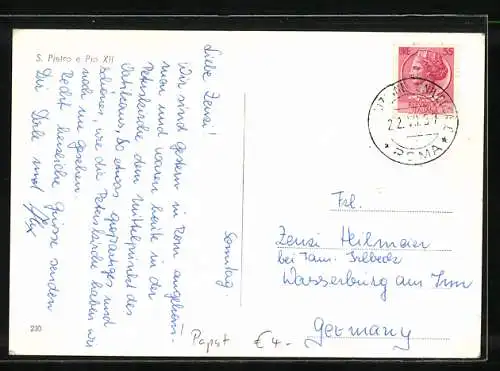 S. Pietro e Pio XII
Sonntag.
Liebe Zenzi!
Wir sind gestern in Rom angekom-
men und waren heute in der
Peterskirche dem Mittelpunkt des
Vatikans. So etwas großartiges und
schönes, wie die Peterskirche haben wir
noch nie gesehen.
Recht herzliche Grüsse senden
Dir und
230
Papst € 4.-
35
ROMA
Frl.
Zenzi Heilmaier
bei Fam.
Wasserburg am Inn
Germany